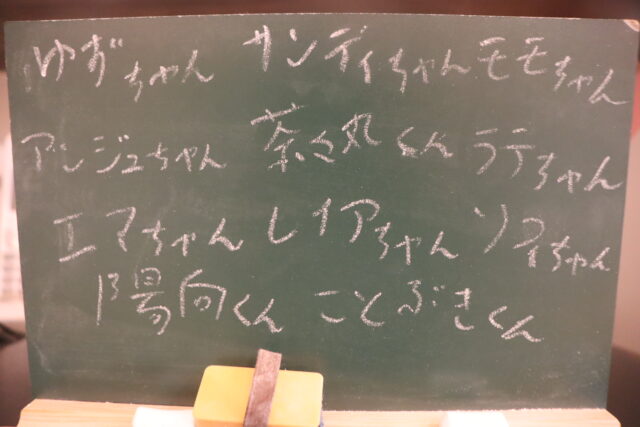 ゆずちゃん サンディちゃん モモちゃん
アンジュちゃん 茶々丸くん ラテちゃん
エマちゃん レイアちゃん ソフィちゃん
陽向くん ことぶきくん